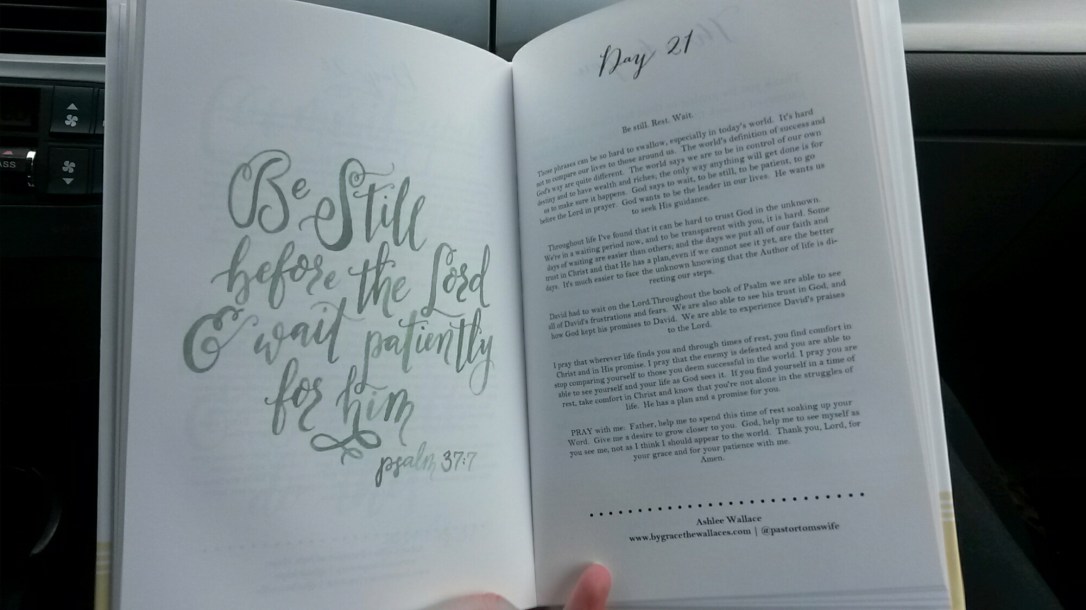 Be Still
before the Lord
& wait patiently
for him
psalm 37:7
Day 21
Be still. Rest. Wait.
Those phrases can be so hard to swallow, especially in today's world. It's hard
not to compare our lives to those around us. The world's definition of success and
God's way are quite different. The world says we are to be in control of our own
destiny and to have wealth and riches; the only way anything will get done is for
us to make sure it happens. God says to wait, to be still, to be patient, to go
before the Lord in prayer. God wants to be the leader in our lives. He wants us
to seek His guidance.
Throughout life I've found that it can be hard to trust God in the unknown.
We're in a waiting period now, and to be transparent with you, it is hard. Some
days of waiting are easier than others; and the days we put all of our faith and
trust in Christ and that He has a plan,even if we cannot see it yet, are the better
days. It's much easier to face the unknown knowing that the Author of life is di-
recting our steps.
David had to wait on the Lord.Throughout the book of Psalm we are able to see
all of David's frustrations and fears. We are also able to see his trust in God, and
how God kept his promises to David. We are able to experience David's praises
to the Lord.
I pray that wherever life finds you and through times of rest, you find comfort in
Christ and in His promise. I pray that the enemy is defeated and you are able to
stop comparing yourself to those you deem successful in the world. I pray you are
able to see yourself and your life as God sees it. If you find yourself in a time of
rest, take comfort in Christ and know that you're not alone in the struggles of
life. He has a plan and a promise for you.
PRAY with me: Father, help me to spend this time of rest soaking up your
Word. Give me a desire to grow closer to you. God, help me to see myself as
you see me, not as I think I should appear to the world. Thank you, Lord, for
your grace and for your patience with me.
Amen.
Ashlee Wallace
www.bygracethewallaces.com | @pastortomswife